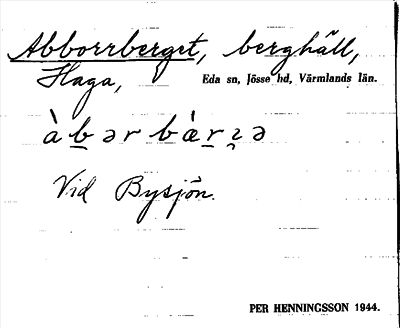 Abborrberget, berghäll,
Haga, Eda sn, Jösse hd, Värmlands län.
àb̲ər bàr̲ɂ̨ə
Vid Bysjön.
PER HENNINGSSON 1944.